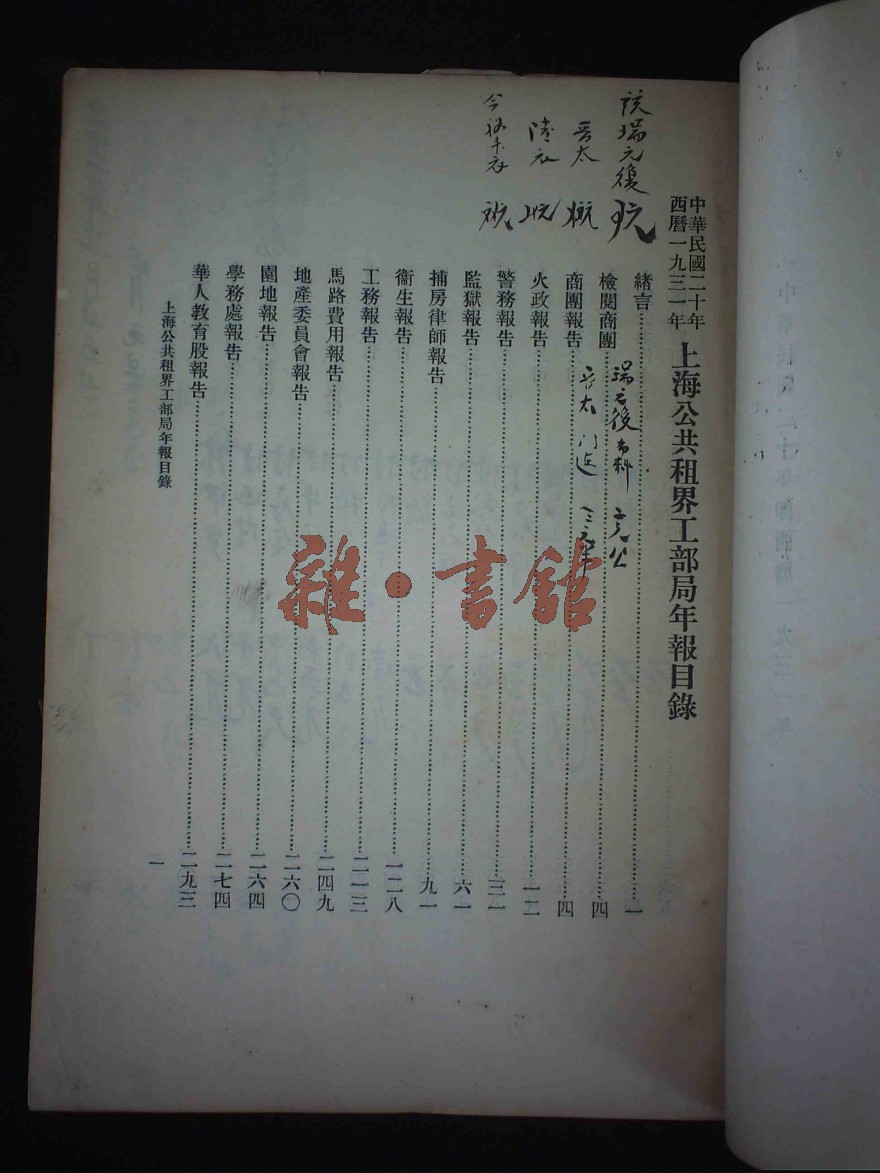 中華民國二十年
西曆一九三一年
上海公共租界工部局年報目錄
緒言一
檢閱商團四
商團報告四
火政報告一二
警務報告三一
監獄報告六一
捕房律師報告九一
衞生報告一二八
工務報告二一三
馬路費用報告二四九
地產委員會報告二六〇
園地報告二六四
學務處報告二七四
華人教育股報告二九三
上海公共租界工部局年報目錄
一
瑞元後
晋太
雜·書館